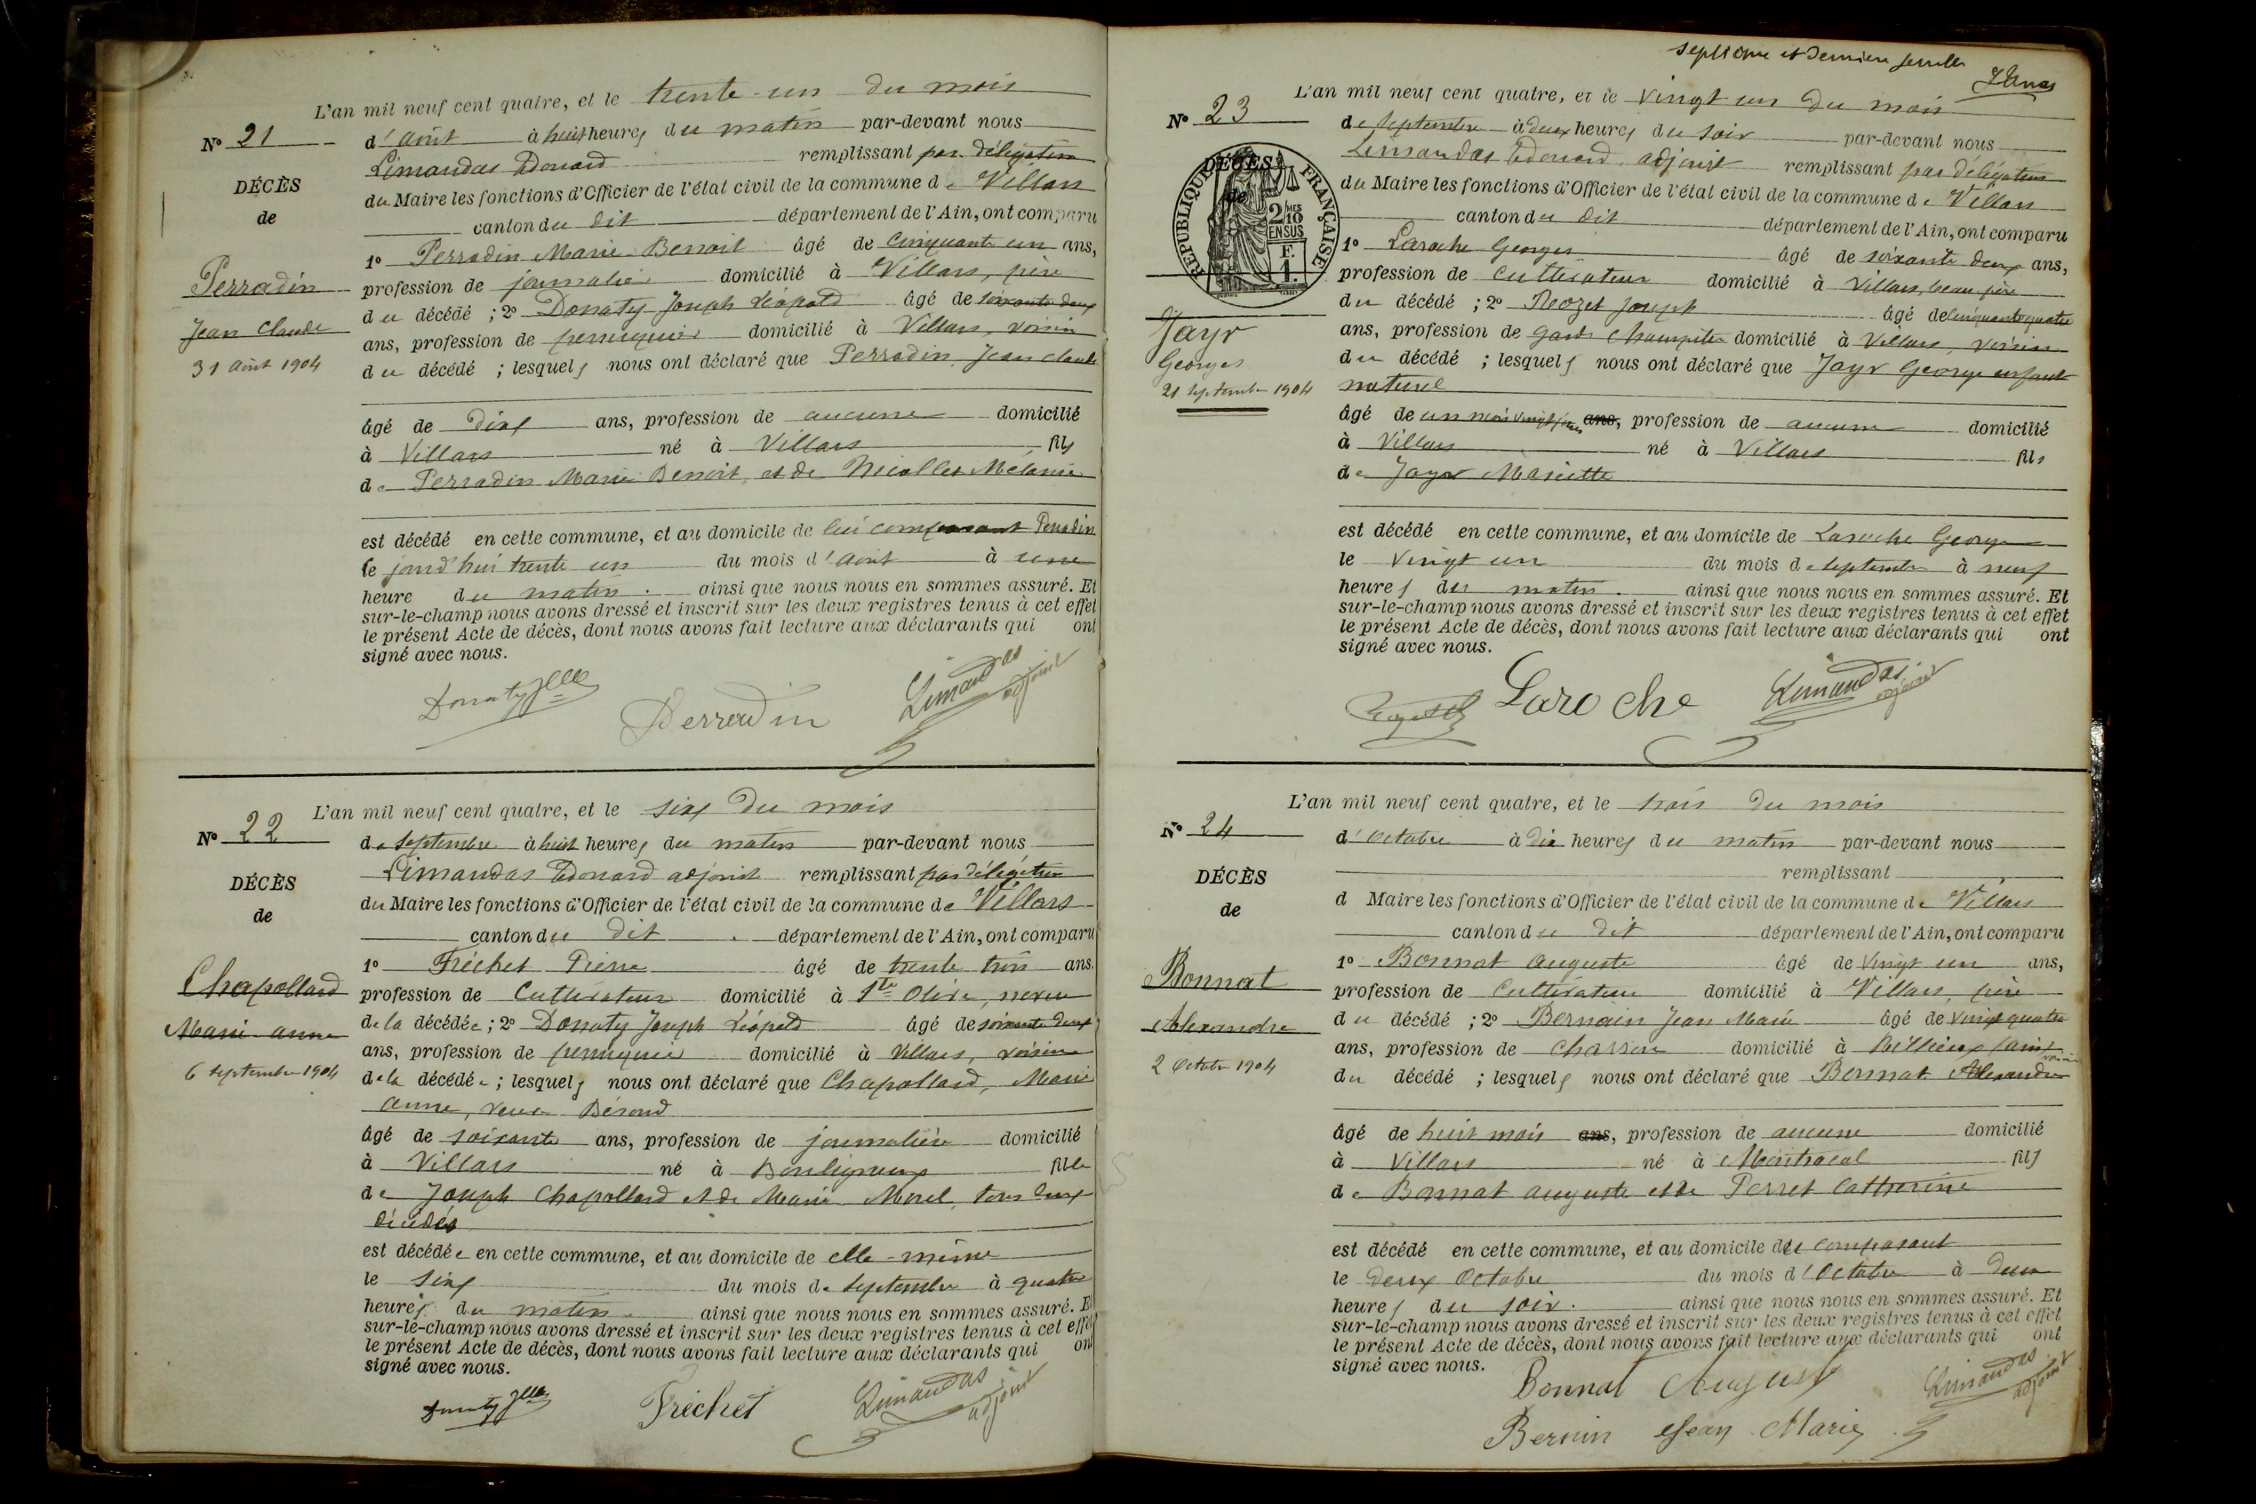 L'an mil neuf cent quatre, et le trente-un du mois
N° 21
d'août à huit heures du matin par-devant nous
Limandas Edouard remplissant par délégation
DÉCÈS
du Maire les fonctions d'Officier de l'état civil de la commune de Villars
de
canton du dit département de l'Ain, ont comparu
1° Perradin Marie Benoit âgé de cinquante un ans,
Perradin
profession de journalier domicilié à Villars, père
du décédé ; 2° Donaty Joseph Léopold âgé de soixante deux
Jean Claude
ans, profession de perruquier domicilié à Villars, voisin
31 août 1904
du décédé ; lesquels nous ont déclaré que Perradin Jean Claude
âgé de dix ans, profession de aucune domicilié
à Villars né à Villars fils
de Perradin Marie Benoit, et de Nicollet Mélanie
est décédé en cette commune, et au domicile de lui comparant Perradin
le jourd'hui trente un du mois d'août à une
heure du matin. ainsi que nous nous en sommes assuré. Et
sur-le-champ nous avons dressé et inscrit sur les deux registres tenus à cet effet
le présent Acte de décès, dont nous avons fait lecture aux déclarants qui ont
signé avec nous.
Donaty
Perradin
Limandas adjoint
L'an mil neuf cent quatre, et le six du mois
N° 22
de septembre à huit heures du matin par-devant nous
Limandas Edouard adjoint remplissant par délégation
DÉCÈS
du Maire les fonctions d'Officier de l'état civil de la commune de Villars
de
canton du dit département de l'Ain, ont comparu
1° Fréchet Pierre âgé de trente trois ans,
Chapolland
profession de Cultivateur domicilié à Ste Olive, neveu
de la décédée ; 2° Donaty Joseph Léopold âgé de soixante deux
Marie anne
ans, profession de perruquier domicilié à Villars, voisin
6 septembre 1904
de la décédée ; lesquels nous ont déclaré que Chapolland, Marie
anne, veuve Béroud
âgé de soixante ans, profession de journalière domicilié
à Villars né à Bouligneux fille
de Joseph Chapolland et de Marie Morel, tous deux
décédés
est décédée en cette commune, et au domicile de elle-même
le six du mois de septembre à quatre
heures du matin. ainsi que nous nous en sommes assuré. Et
sur-le-champ nous avons dressé et inscrit sur les deux registres tenus à cet effet
le présent Acte de décès, dont nous avons fait lecture aux déclarants qui ont
signé avec nous.
Donaty
Fréchet
Limandas adjoint
septième et dernière feuille
L'an mil neuf cent quatre, et le vingt un du mois
N° 23
de septembre à deux heures du soir par-devant nous
Limandas Edouard adjoint remplissant par délégation
DÉCÈS
du Maire les fonctions d'Officier de l'état civil de la commune de Villars
de
RÉPUBLIQUE FRANÇAISE
2/10 MES
EN SUS
F.
1.
canton du dit département de l'Ain, ont comparu
1° Laroche Georges âgé de soixante deux ans,
profession de cultivateur domicilié à Villars, beau père
du décédé ; 2° Rozet Joseph âgé de cinquante quatre
Jayr
ans, profession de garde champêtre domicilié à Villars, voisin
Georges
du décédé ; lesquels nous ont déclaré que Jayr George enfant
21 septembre 1904
naturel
âgé de un mois vingt jours ans, profession de aucune domicilié
à Villars né à Villars fils
de Jayr Mariette
est décédé en cette commune, et au domicile de Laroche George
le vingt un du mois de septembre à neuf
heures du matin. ainsi que nous nous en sommes assuré. Et
sur-le-champ nous avons dressé et inscrit sur les deux registres tenus à cet effet
le présent Acte de décès, dont nous avons fait lecture aux déclarants qui ont
signé avec nous.
Laroche
Limandas adjoint
L'an mil neuf cent quatre, et le trois du mois
N° 24
d'octobre à dix heures du matin par-devant nous
remplissant
DÉCÈS
d Maire les fonctions d'Officier de l'état civil de la commune de Villars
de
canton du dit département de l'Ain, ont comparu
1° Bonnat auguste âgé de vingt un ans,
Bonnat
profession de cultivateur domicilié à Villars, père
Alexandre
du décédé ; 2° Bernain Jean Marie âgé de vingt quatre
ans, profession de charron domicilié à Billieux (ain) voisin
2 Octobre 1904
du décédé ; lesquels nous ont déclaré que Bonnat Alexandre
âgé de huit mois ans, profession de aucune domicilié
à Villars né à Montracol fils
de Bonnat auguste et de Perret Catherine
est décédé en cette commune, et au domicile du comparant
le deux Octobre du mois d'Octobre à deux
heures du soir. ainsi que nous nous en sommes assuré. Et
sur-le-champ nous avons dressé et inscrit sur les deux registres tenus à cet effet
le présent Acte de décès, dont nous avons fait lecture aux déclarants qui ont
signé avec nous.
Bonnat August
Limandas adjoint
Bernin Jean Marie